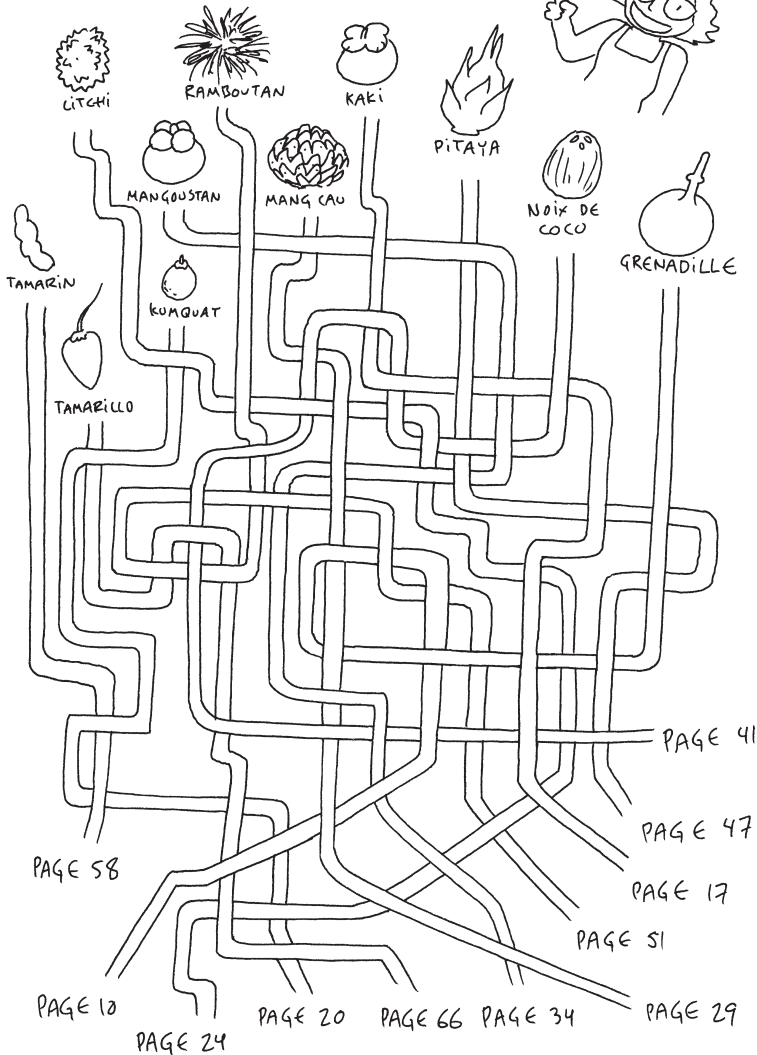 LITCHI
RAMBOUTAN
KAKI
PITAYA
MANGOUSTAN
MANG CAU
NOIX DE
COCO
GRENADILLE
TAMARIN
KUMQUAT
TAMARILLO
PAGE 41
PAGE 47
PAGE 58
PAGE 17
PAGE 51
PAGE 10
PAGE 20
PAGE 66
PAGE 34
PAGE 29
PAGE 24